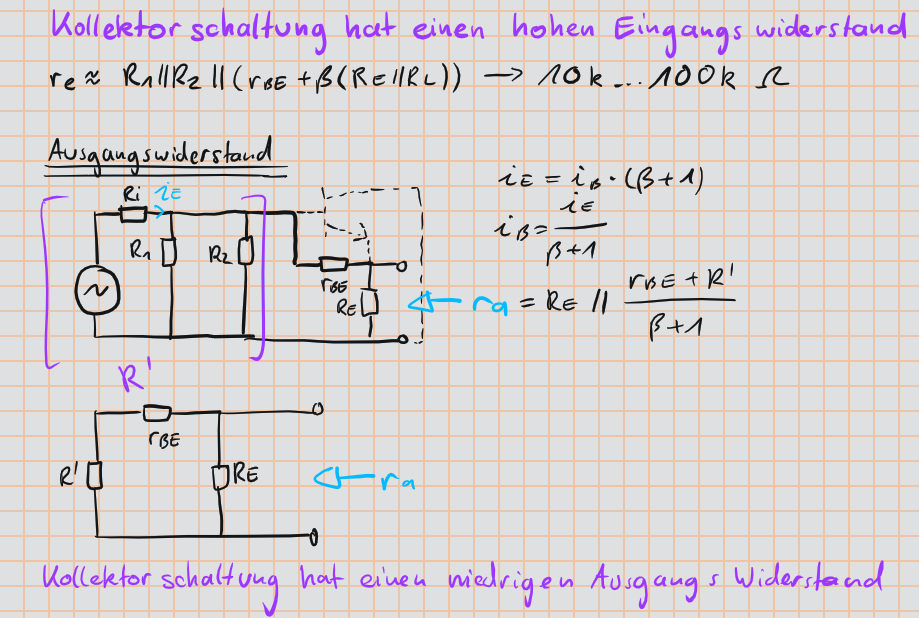 Kollektorschaltung hat einen hohen Eingangswiderstand
re ≈ R1||R2||(rBE + β(RE||RL)) → 10k...100k Ω
Ausgangswiderstand
Ri iE
R1 R2
rBE
RE
iE = iB · (β+1)
iB = iE / β+1
ra = RE // rBE + R' / β+1
R'
rBE
R' RE ra
Kollektorschaltung hat einen niedrigen Ausgangs Widerstand